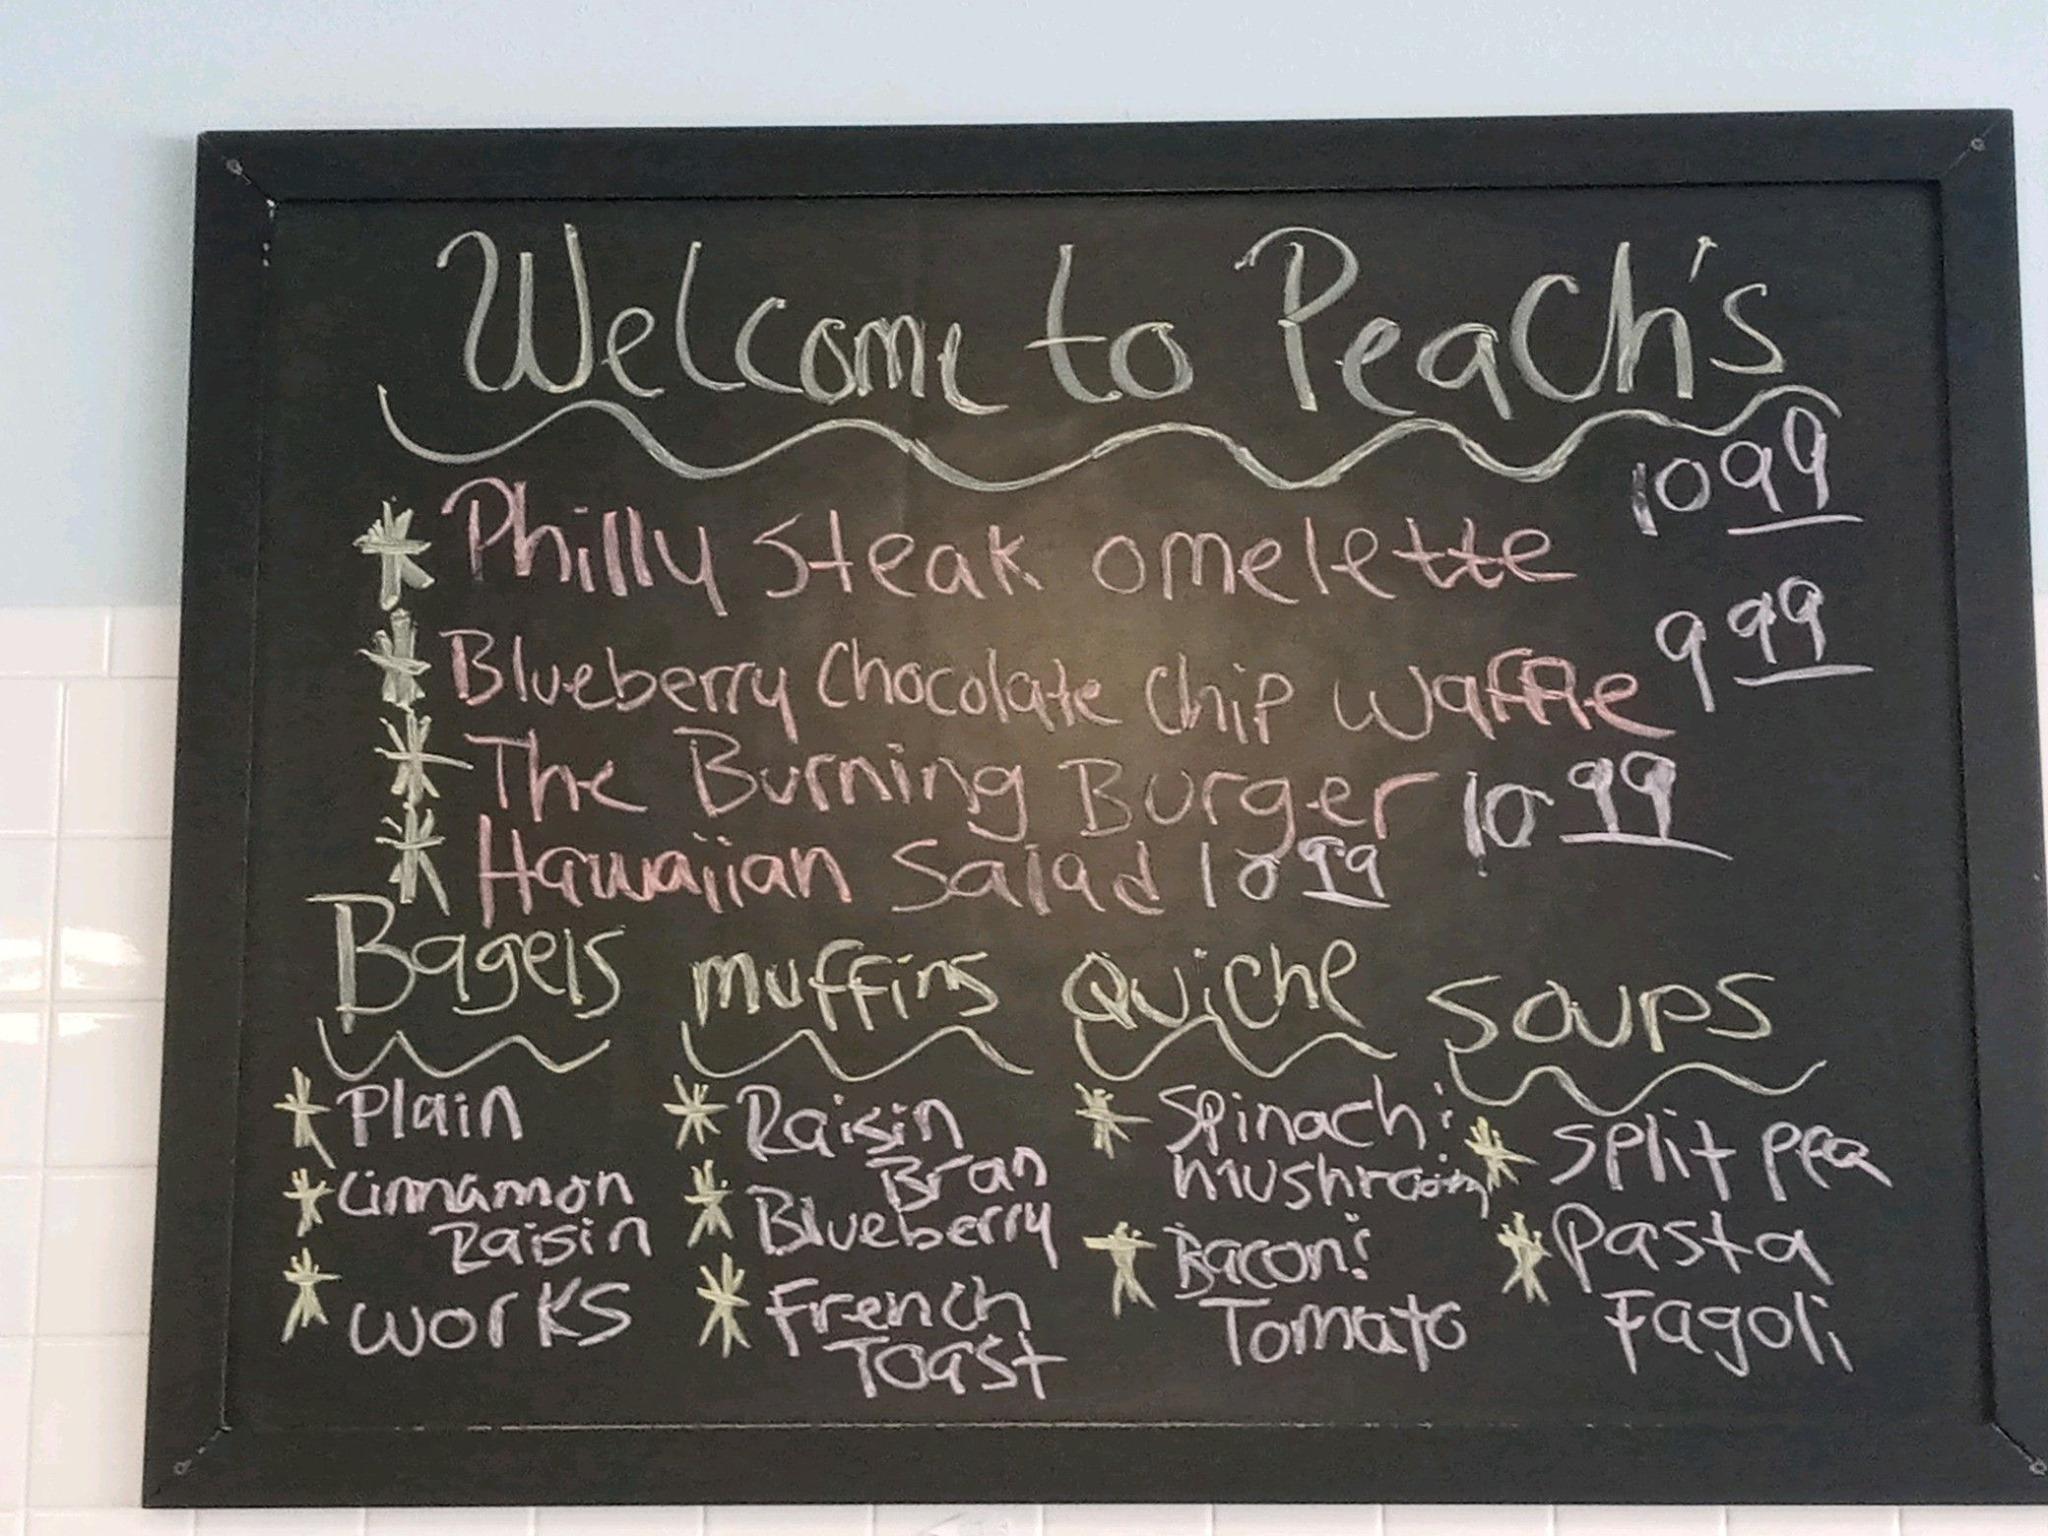 Welcome to Peach's
* Philly Steak omelette 10 99
* Blueberry Chocolate Chip Waffle 9 99
* The Burning Burger 10 99
* Hawaiian Salad 10 99
Bagels
* Plain
* Cinnamon
Raisin
* Works
muffins
* Raisin
Bran
* Blueberry
* French
Toast
Quiche
* Spinach :
mushroom
* Bacon :
Tomato
Soups
* Split Pea
* Pasta
Fagoli